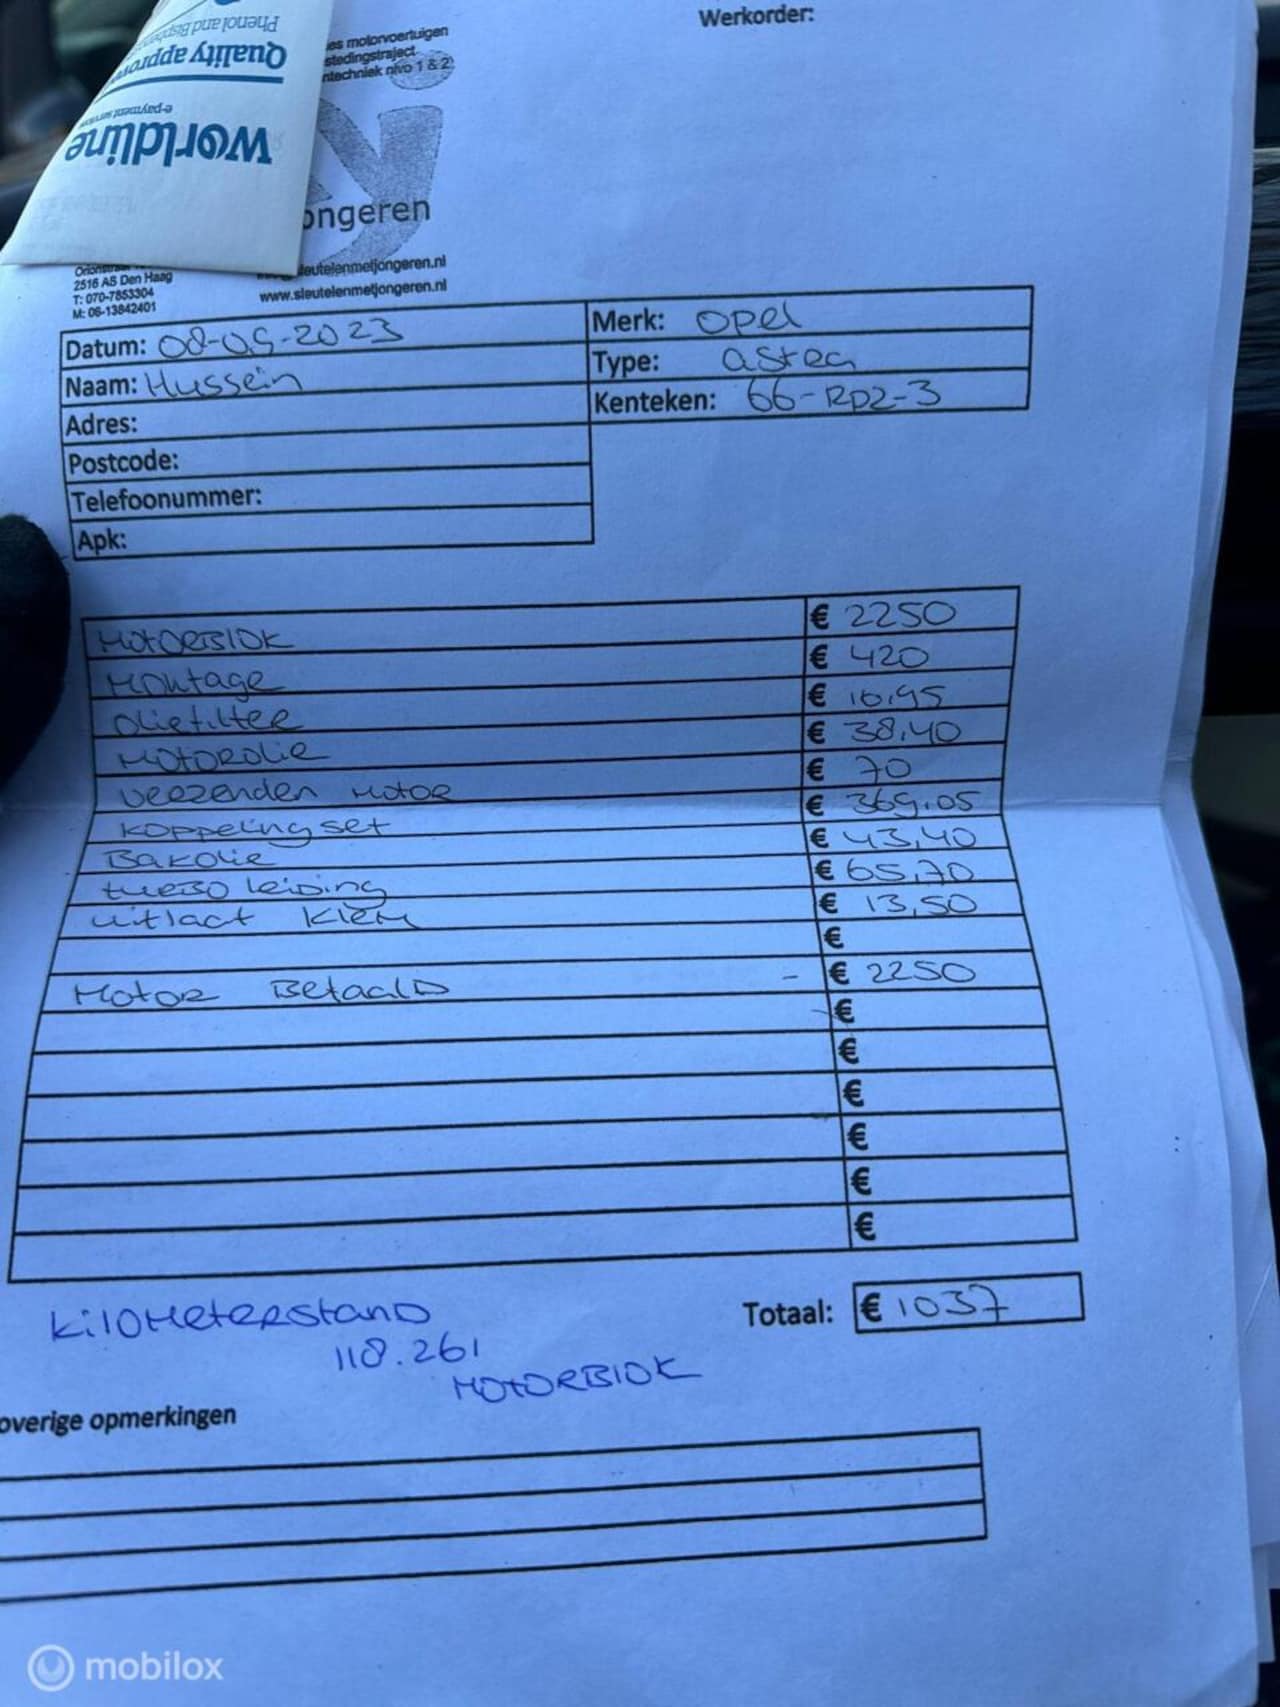 Phenol and Bisphenol
Quality approved
e-payment services
worldline
Werkorder:
es motorvoertuigen
stedingstraject
ntechniek nivo 1 & 2
ongeren
2516 AS Den Haag
T: 070-7853304
M: 06-13842401
leutelenmetjongeren.nl
www.sleutelenmetjongeren.nl
Datum: 08-09-2023
Naam: Hussein
Adres:
Postcode:
Telefoonnummer:
Apk:
Merk: Opel
Type: astra
Kenteken: 66-RDZ-3
MOTORBLOK € 2250
Montage € 420
Oliefilter € 16,95
MOTOROLIE € 38,40
Verzenden MOTOR € 70
Koppelingset € 369,05
Bakolie € 43,40
turbo leiding € 65,70
uitlaat Klem € 13,50
€
Motor Betaald - € 2250
€
€
€
€
€
€
Totaal: € 1037
Kilometerstand
118.261
MOTORBLOK
overige opmerkingen
mobilox